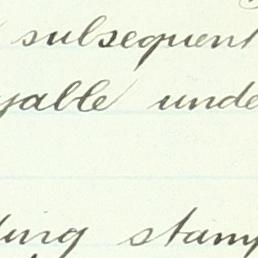 subsequent
yable unde
ing stamp